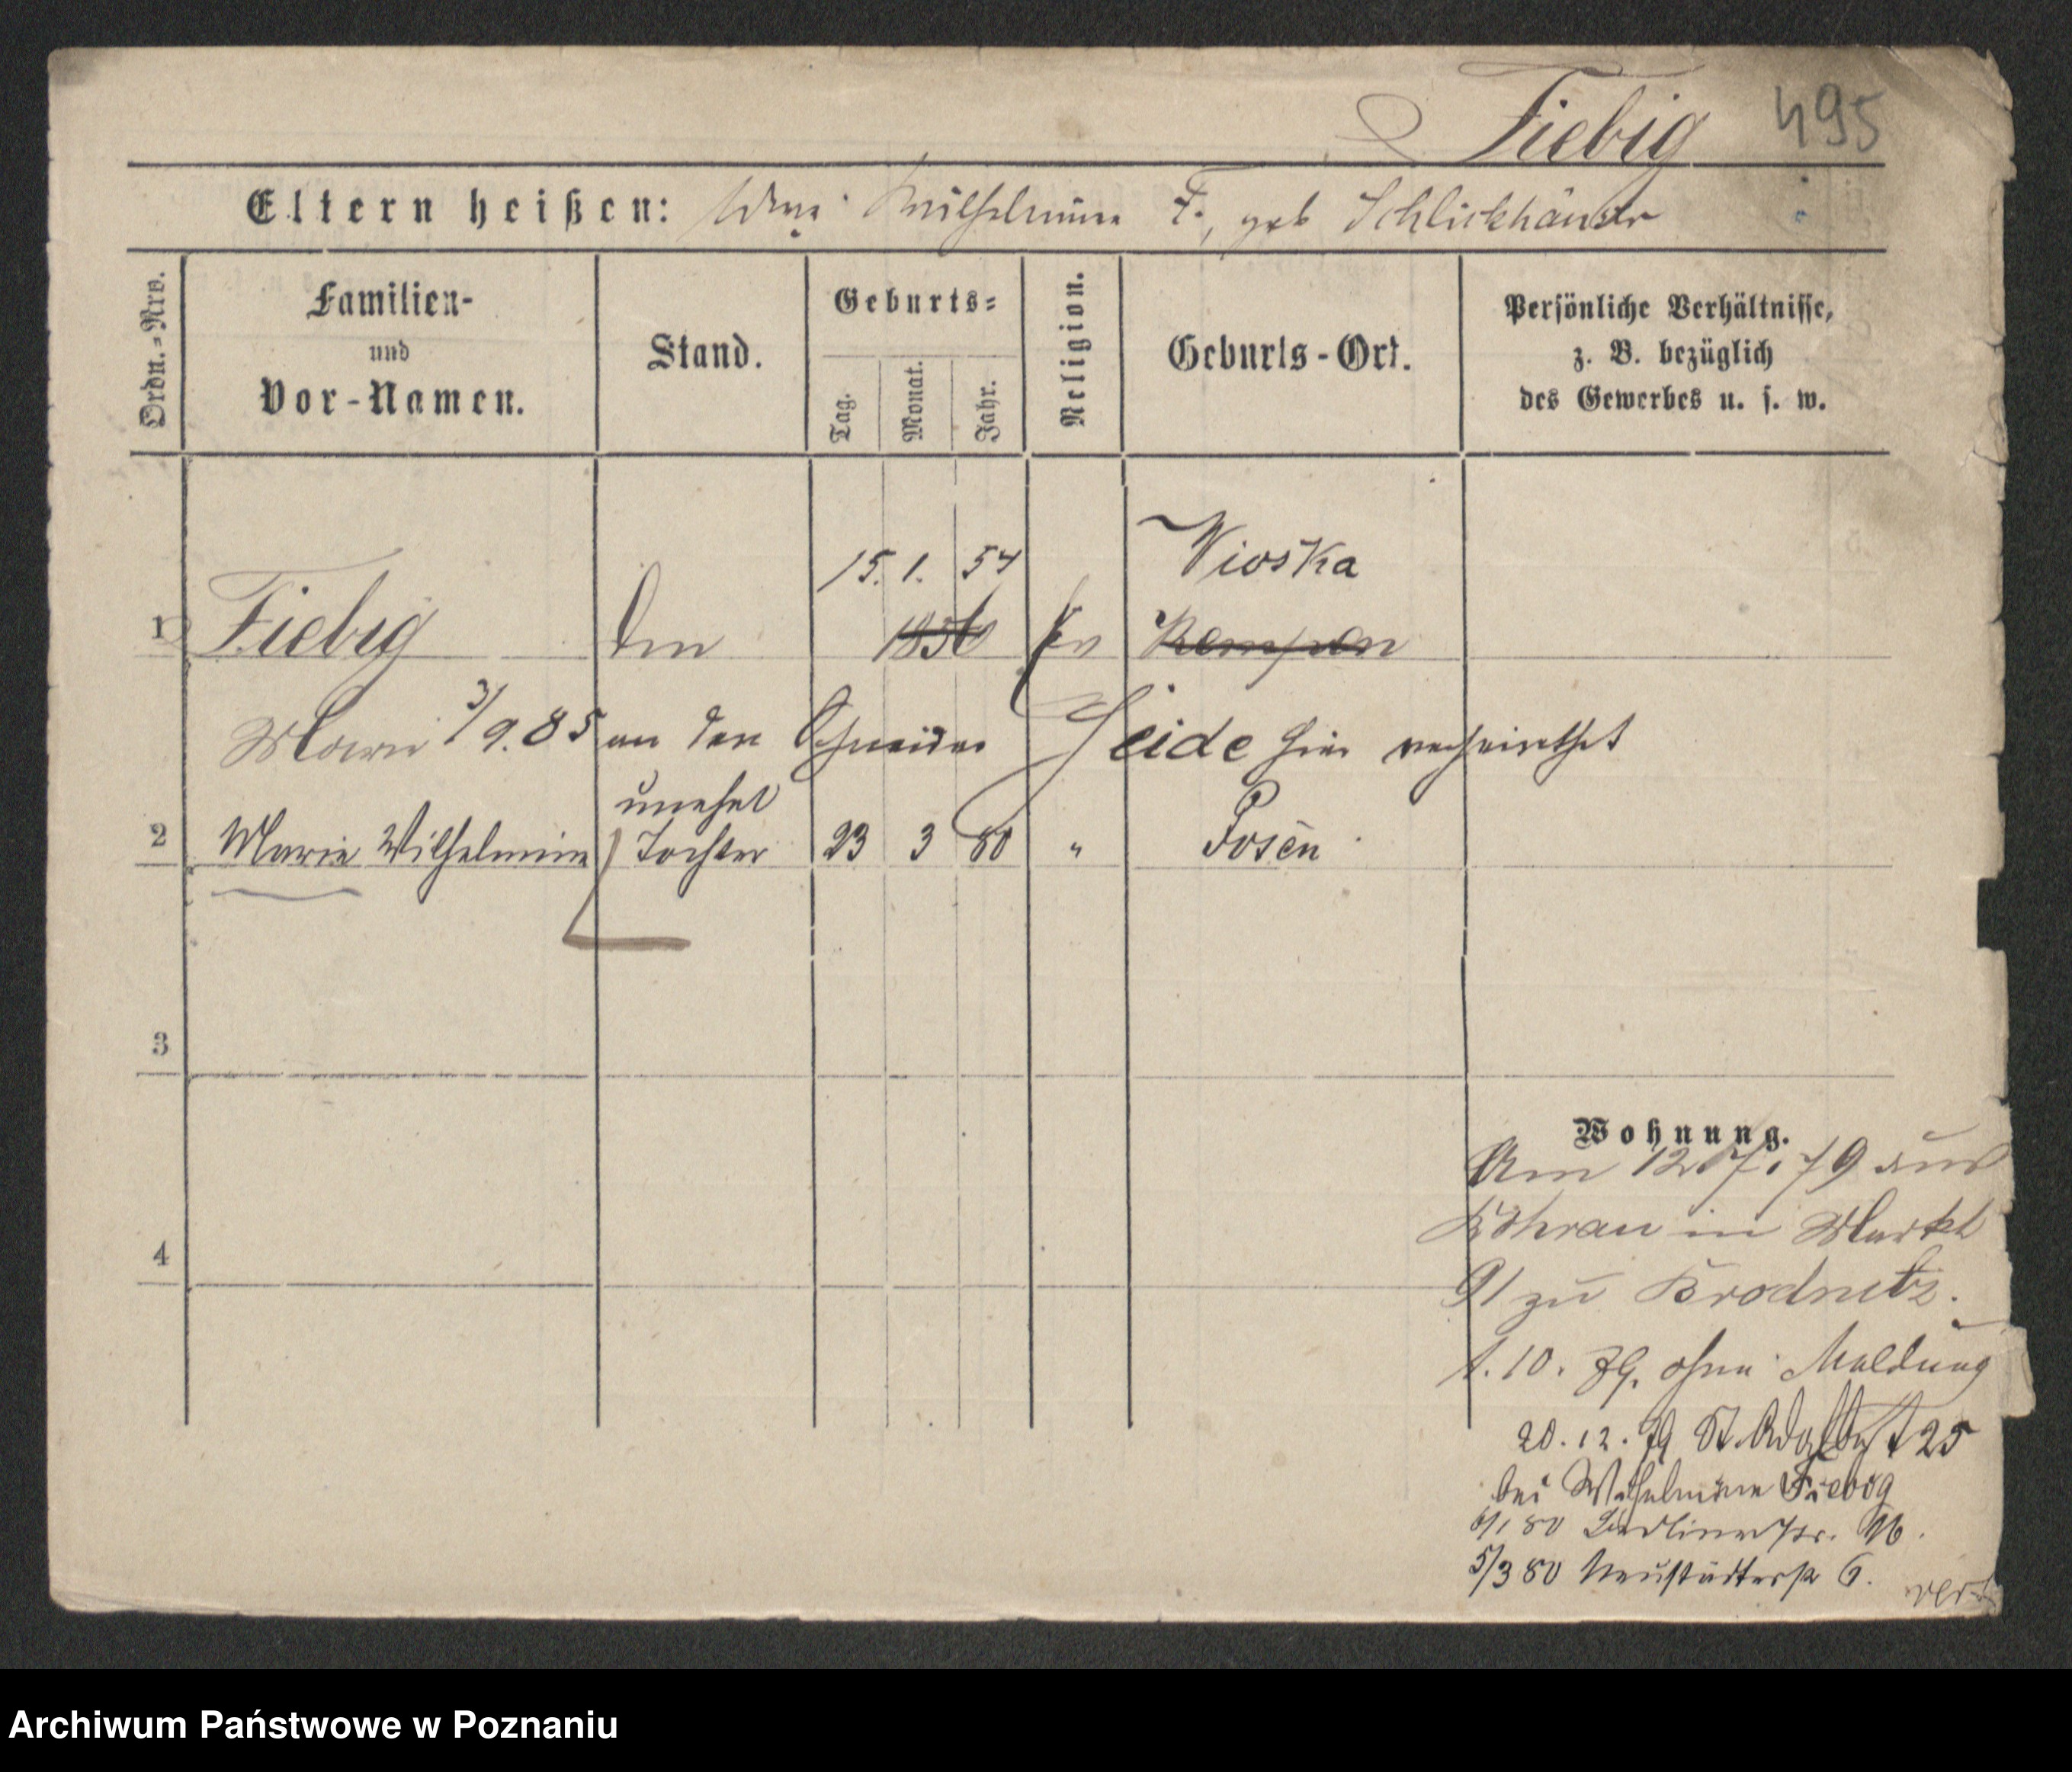 Fiebig 495
Eltern heißen: Wilhelmine F., geb Schlickhäuser
Ordn.-Nro.
Familien-
und
Vor-Namen.
Stand.
Geburts=
Tag.
Monat.
Jahr.
Religion.
Geburts-Ort.
Persönliche Verhältnisse,
z. B. bezüglich
des Gewerbes u. s. w.
15. 1. 54 Vioska
1 Fiebig 1856 Ev Kempen
Marie 3/9.85 an den Schneider Heide hier verheirathet
unehel
2 Marie Wilhelmine Tochter 23 3 80 " Posen
3
4
Wohnung.
Am 12 7. 79 aus
in Markt
91 zu Brodnitz.
1. 10. 79. ohne Meldung
20. 12. 79 St. Adalbert 25
bei Wilhelmine Fiebig
6/1 80 Berlinerstr.
5/3 80 Neustädterstr 6.
Archiwum Państwowe w Poznaniu